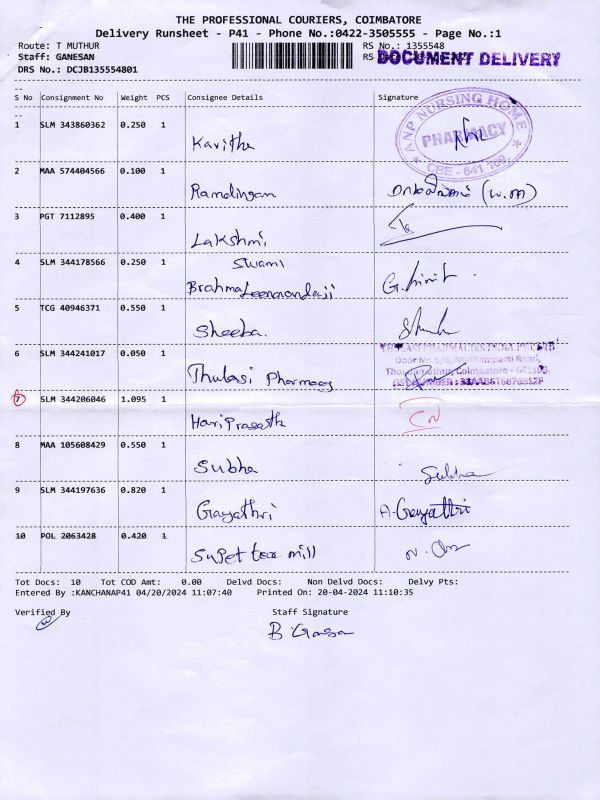 THE PROFESSIONAL COURIERS, COIMBATORE
Delivery Runsheet - P41 - Phone No.:0422-3505555 - Page No.:1
Route: T MUTHUR
RS No.: 1355548
Staff: GANESAN
RS
DOCUMENT DELIVERY
DRS No.: DCJB135554801
--
S No Consignment No Weight PCS Consignee Details Signature
--
1 SLM 343860362 0.250 1
Kavitha
ANP NURSING HOME
PHARMACY
CBE - 641 109
2 MAA 574404566 0.100 1
Ramalingam
3 PGT 7112895 0.400 1
Lakshmi
4 SLM 344178566 0.250 1
Swami
Brahmaleenanandaji
5 TCG 40946371 0.550 1
Sheeba.
6 SLM 344241017 0.050 1
Thulasi Pharmacy
Door No
Coimbatore - 641109.
7 SLM 344206046 1.095 1
Hariprasath
8 MAA 105608429 0.550 1
Subha
Subha
9 SLM 344197636 0.820 1
Gayathri
A. Gayathri
10 POL 2063428 0.420 1
Super tex mill
Tot Docs: 10 Tot COD Amt: 0.00 Delvd Docs: Non Delvd Docs: Delvy Pts:
Entered By :KANCHANAP41 04/20/2024 11:07:40 Printed On: 20-04-2024 11:10:35
Verified By Staff Signature